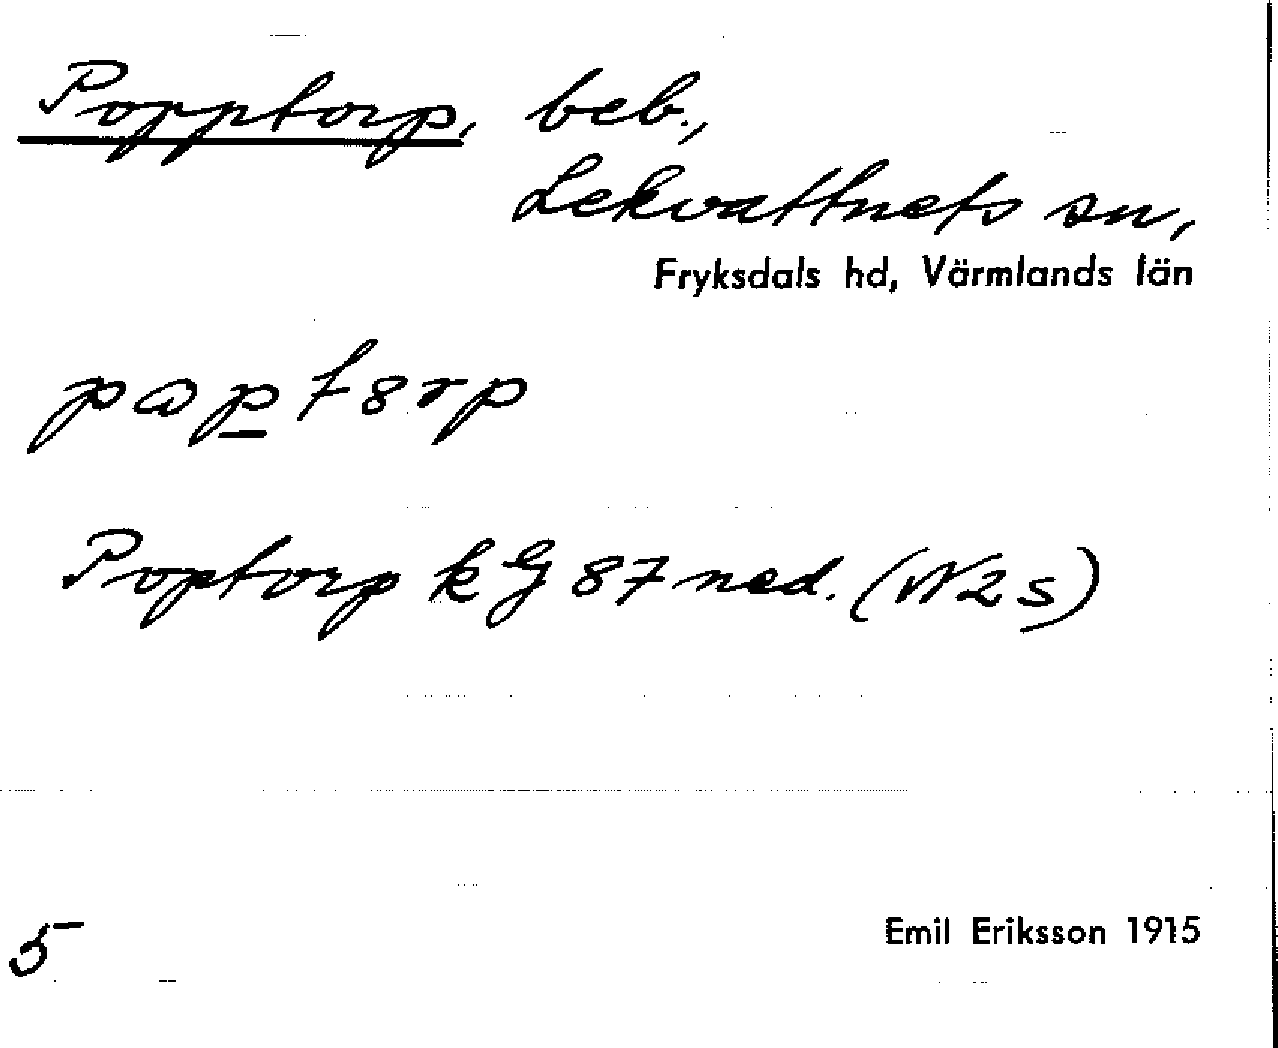 Popptorp, beb.,
Lekvattnets sn,
Fryksdals hd, Värmlands län
pap̲t8rp
Poptorp kG 87 ned. (N2s)
5
Emil Eriksson 1915